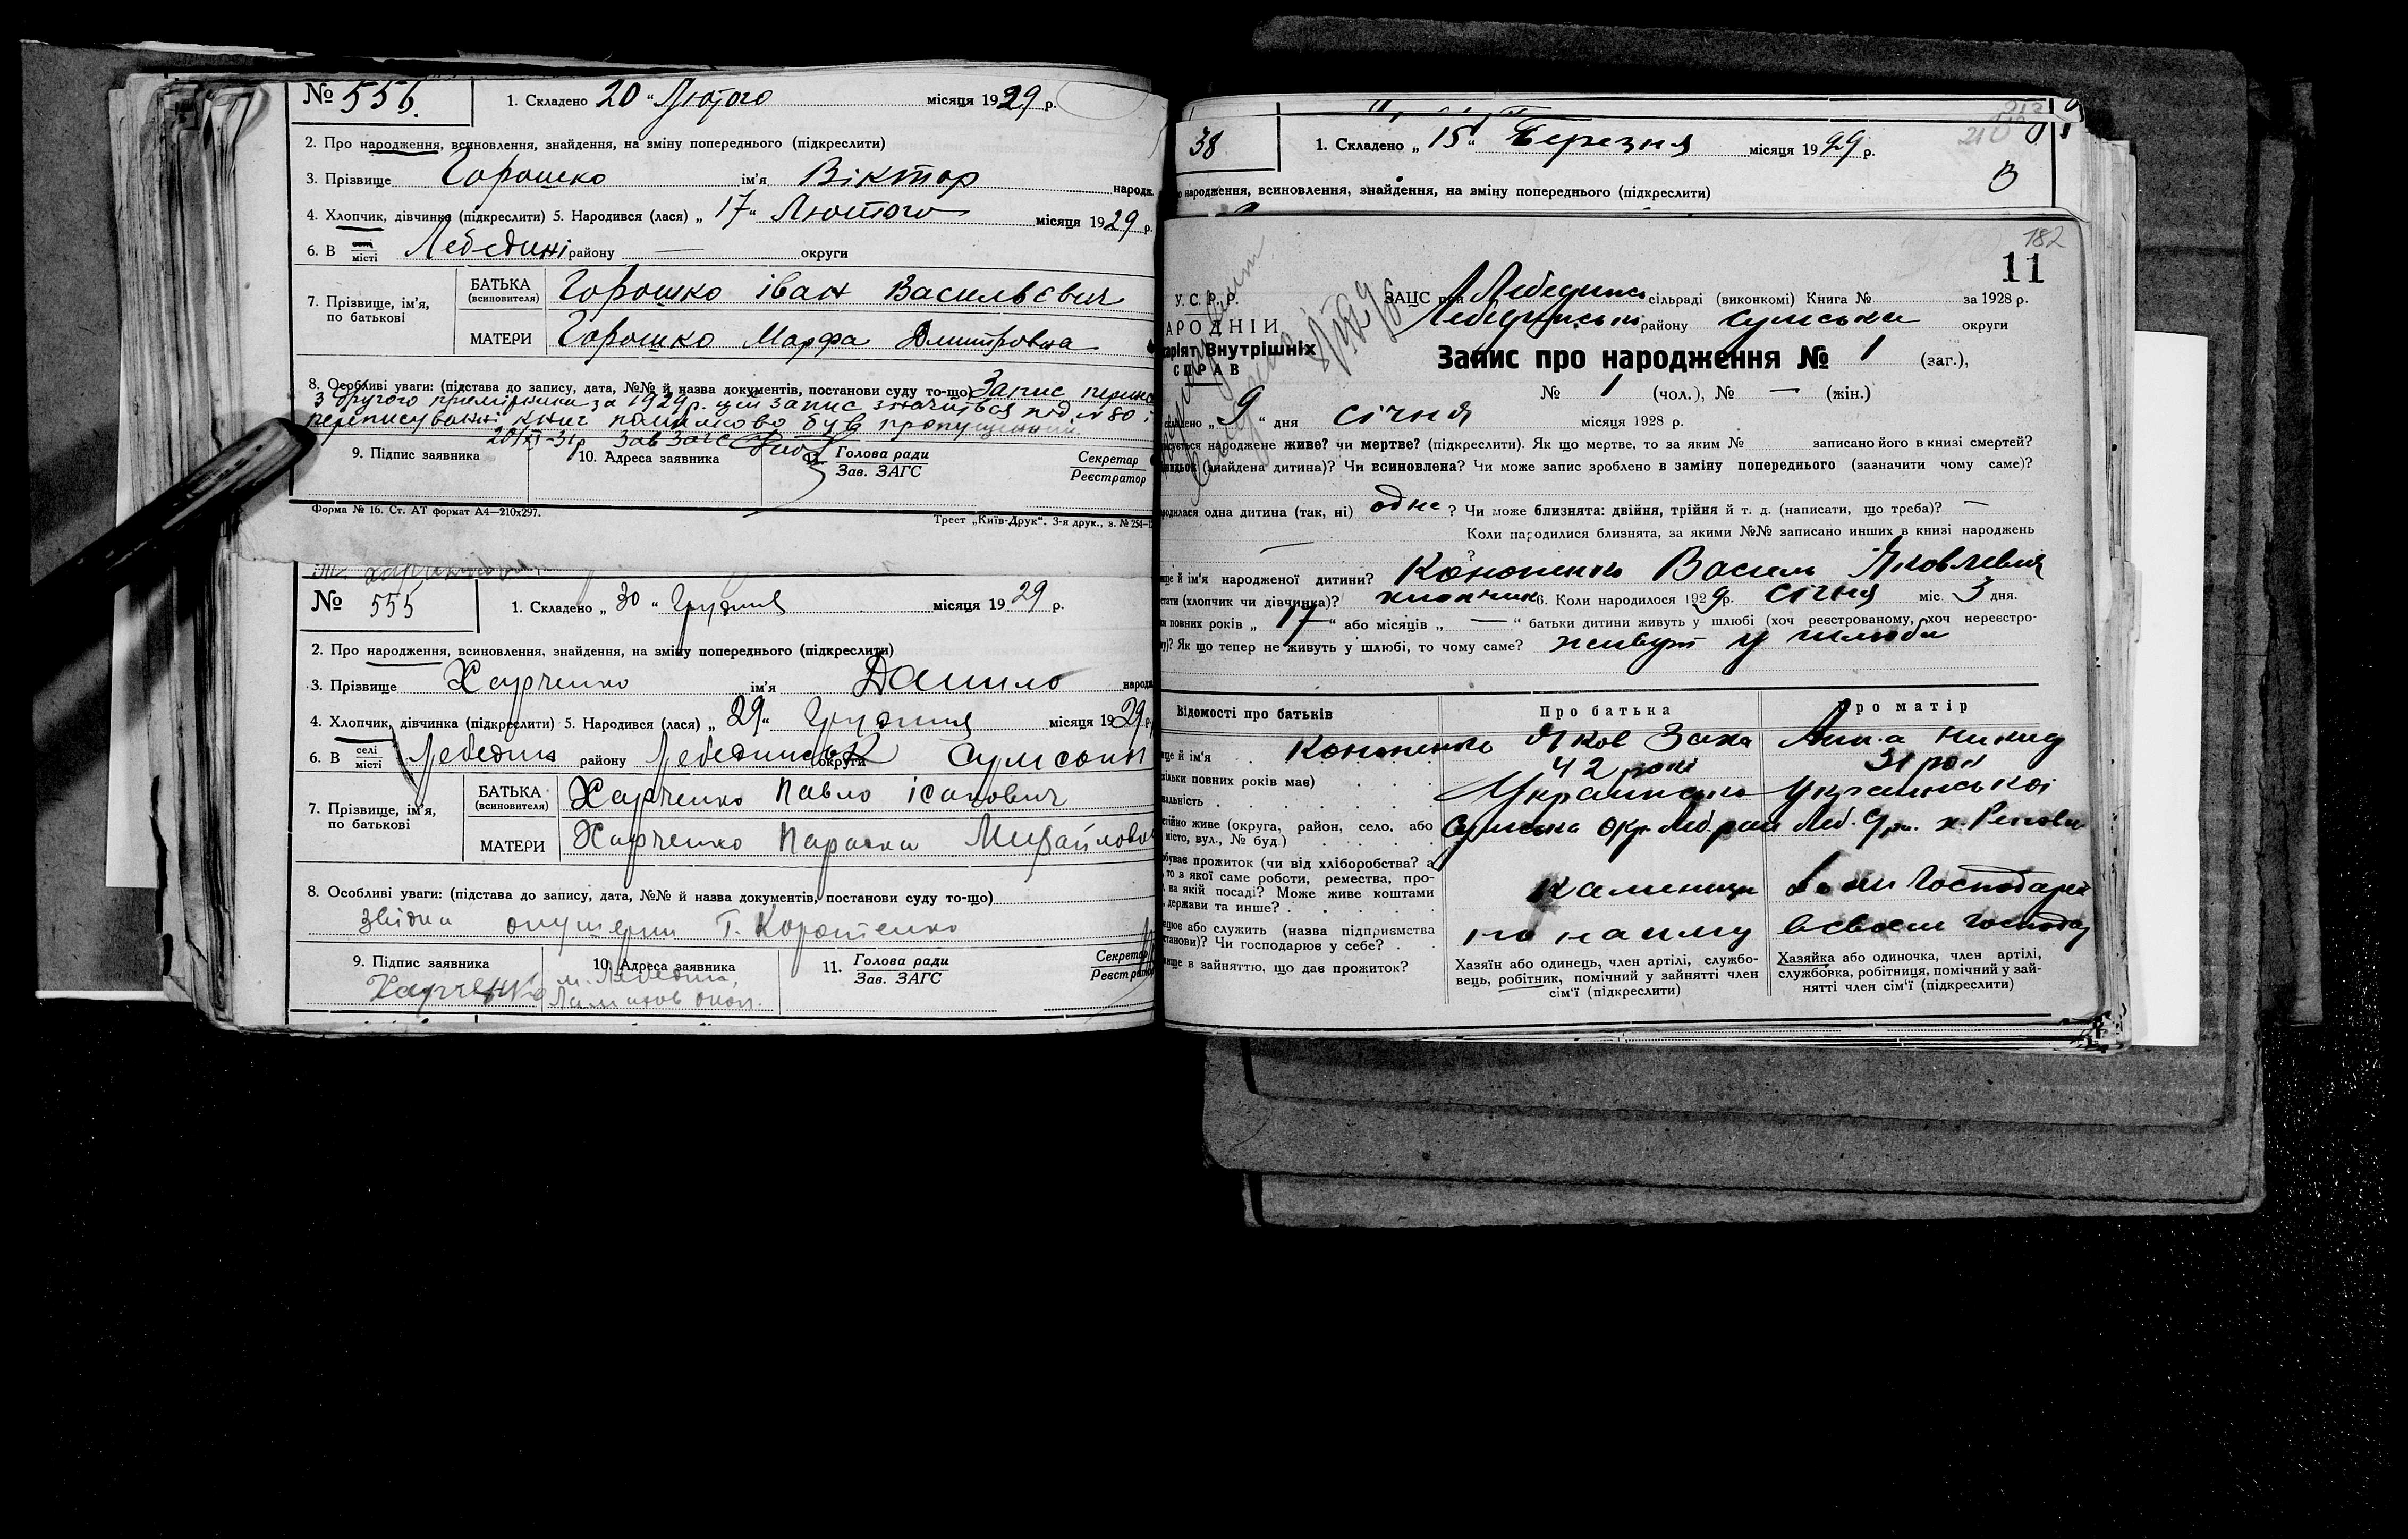 № 556. 1. Складено 20 "Лютого місяця 1929 р.
2. Про народження, всиновлення, знайдення, на зміну попереднього (підкреслити)
3. Прізвище Горошко ім'я Віктор народж.
4. Хлопчик, дівчинка (підкреслити) 5. Народився (лася) „ 17 “ Лютого місяця 1929 р.
6. В місті Лебедині району — округи
7. Прізвище, ім'я, по батькові
БАТЬКА (всиновителя) Горошко іван Васильєвич
МАТЕРИ Горошко Марфа Дмитровна
8. Особливі уваги: (підстава до запису, дата, №№ й назва документів, постанови суду то-що) Запис
з другого примірника за 1929 р. цей запис значиться під № 80 і
переписуванні книг помилково був пропущений
Зав Загс
9. Підпис заявника 10. Адреса заявника 11. Голова ради Зав. ЗАГС Секретар Реєстратор
Форма № 16. Ст. АТ формат А4—210х297. Трест „Київ-Друк“. 3-я друк., з. № 254—
№ 555 1. Складено „ 30 “ Грудня місяця 1929 р.
2. Про народження, всиновлення, знайдення, на зміну попереднього (підкреслити)
3. Прізвище Харченко ім'я Данило народж
4. Хлопчик, дівчинка (підкреслити) 5. Народився (лася) „ 29 “ Грудня місяця 1929 р.
6. В селі місті Лебедин району Лебединськ округи
7. Прізвище, ім'я, по батькові
БАТЬКА (всиновителя) Харченко Павло ісакович
МАТЕРИ Харченко Параска Михайловн
8. Особливі уваги: (підстава до запису, дата, №№ й назва документів, постанови суду то-що)
Звідки акушерки Г. Коротенко
9. Підпис заявника 10. Адреса заявника 11. Голова ради Зав. ЗАГС Секретар Реєстратор
Харченко м. Лебедин,
38 1. Складено „ 15 “ Березня місяця 1929 р.
народження, всиновлення, знайдення, на зміну попереднього (підкреслити)
В
182
11
У. С. Р. Р.
АРОДНІЙ
аріят Внутрішніх
СПРАВ
ЗАЦС при Лебединс сільраді (виконкомі) Книга № за 1928 р.
Лебединськ району Сумська округи
Запис про народження № 1 (заг.),
№ 1 (чол.), № — (жін.)
складено „ 9 “ дня січня місяця 1928 р.
народжене живе? чи мертве? (підкреслити). Як що мертве, то за яким № записано його в книзі смертей?
(знайдена дитина)? Чи всиновлена? Чи може запис зроблено в заміну попереднього (зазначити чому саме)?
родилася одна дитина (так, ні) одне ? Чи може близнята: двійня, трійня й т. д. (написати, що треба)? —
Коли народилися близнята, за якими №№ записано инших в книзі народжень
— ?
й ім'я народженої дитини? Кононенко Василь Яковлевич
стати (хлопчик чи дівчинка)? хлопчик 6. Коли народилося 1929 р. січня міс. 3 дня.
повних років „ 17 “ або місяців „ — “ батьки дитини живуть у шлюбі (хоч реєстрованому, хоч нереєстро-
му)? Як що тепер не живуть у шлюбі, то чому саме? живут у шлюби
Відомості про батьків Про батька Про матір
й ім'я Кононенко Яков Заха Анна Никид
скільки повних років має) 42 роки 31 рок
нальність Украинська Украинськоі
стійно живе (округа, район, село, або Сумська окр. Леб. рай
місто, вул., № буд.)
обуває прожиток (чи від хліборобства? а
то з якої саме роботи, ремества, про-
на якій посаді? Може живе коштами
держави та инше? каменщи
ацює або служить (назва підприємства
станови)? Чи господарює у себе? по найму в своем господа
вище в зайняттю, що дає прожиток?
Хазяїн або одинець, член артілі, службо-
вець, робітник, помічний у зайнятті член
сім'ї (підкреслити)
Хазяйка або одиночка, член артілі,
службовка, робітниця, помічний у зай-
нятті член сім'ї (підкреслити)